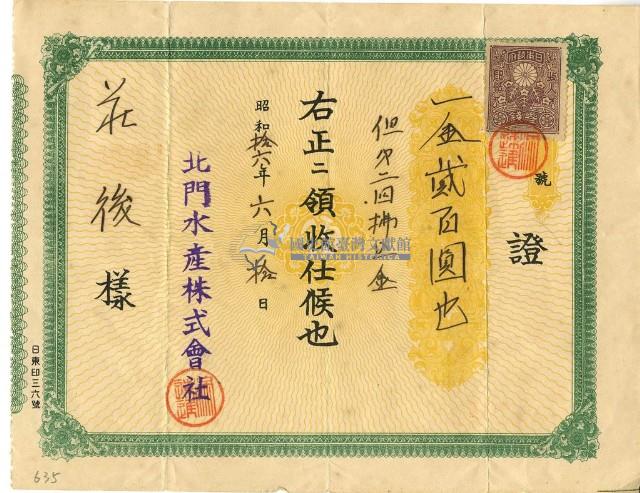 號
證
一金貳百圓也
但第二回拂込金
右正ニ領收仕候也
昭和拾六年六月拾日
北門水產株式會社
莊後樣
日東印三六號
國史館臺灣文獻館
TAIWAN HISTORICA
635